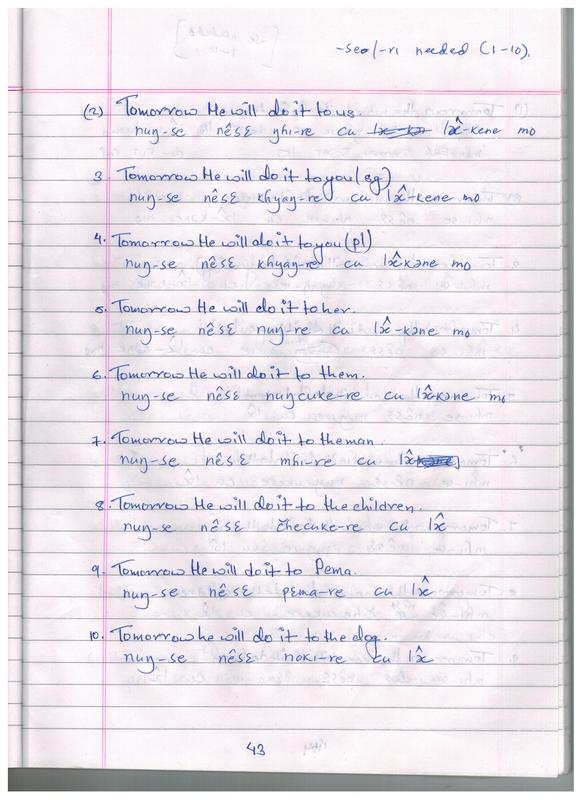 -seo/-ri needed (1-10).
(2) Tomorrow He will do it to us.
nuŋ-se nêsɛ ŋhi-re cu lɔ̂-kene mo
3. Tomorrow He will do it to you (sg)
nuŋ-se nêsɛ khyaŋ-re cu lɔ̂-kene mo
4. Tomorrow He will do it to you (pl)
nuŋ-se nêsɛ khyaŋ-re cu lɔ̂kəne mo
5. Tomorrow He will do it to her.
nuŋ-se nêsɛ nuŋ-re cu lɔ̂-kəne mo
6. Tomorrow He will do it to them.
nuŋ-se nêsɛ nuŋcuke-re cu lɔ̂kəne mo
7. Tomorrow He will do it to the man.
nuŋ-se nêsɛ mhi-re cu
8. Tomorrow He will do it to the children.
nuŋ-se nêsɛ cu
9. Tomorrow He will do it to Pema.
nuŋ-se nêsɛ pema-re cu
10. Tomorrow he will do it to the dog.
nuŋ-se nêsɛ noki-re cu
43